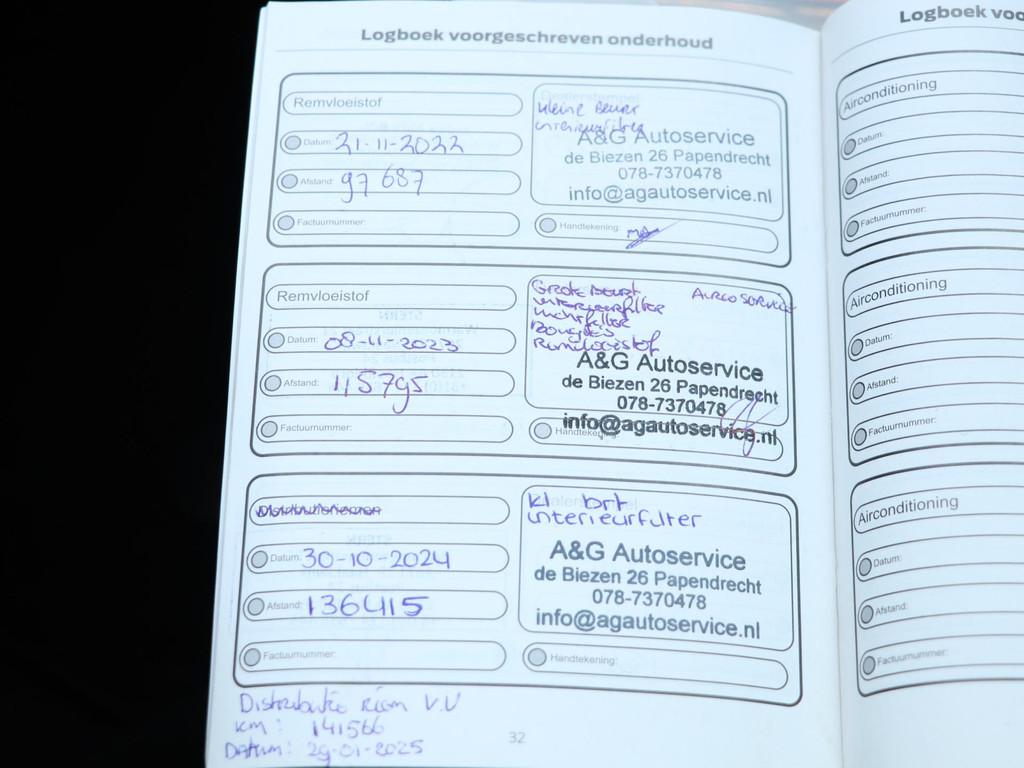 Logboek voorgeschreven onderhoud
Remvloeistof
Datum: 21-11-2022
Afstand: 97 687
Factuurnummer:
Kleine Beurt
interieurfilter
A&G Autoservice
de Biezen 26 Papendrecht
078-7370478
info@agautoservice.nl
Handtekening:
Remvloeistof
Datum: 08-11-2023
Afstand: 115795
Factuurnummer:
Grote Beurt Airco Service
interieurfilter
luchtfilter
Bougies
Remvloeistof
A&G Autoservice
de Biezen 26 Papendrecht
078-7370478
info@agautoservice.nl
Handtekening:
Distributieriemen
Datum: 30-10-2024
Afstand: 136415
Factuurnummer:
kl brt
interieurfilter
A&G Autoservice
de Biezen 26 Papendrecht
078-7370478
info@agautoservice.nl
Handtekening:
Distributie riem V.V
km: 141566
Datum: 29-01-2025
32
Logboek voo
Airconditioning
Datum:
Afstand:
Factuurnummer:
Airconditioning
Datum:
Afstand:
Factuurnummer:
Airconditioning
Datum:
Afstand:
Factuurnummer: